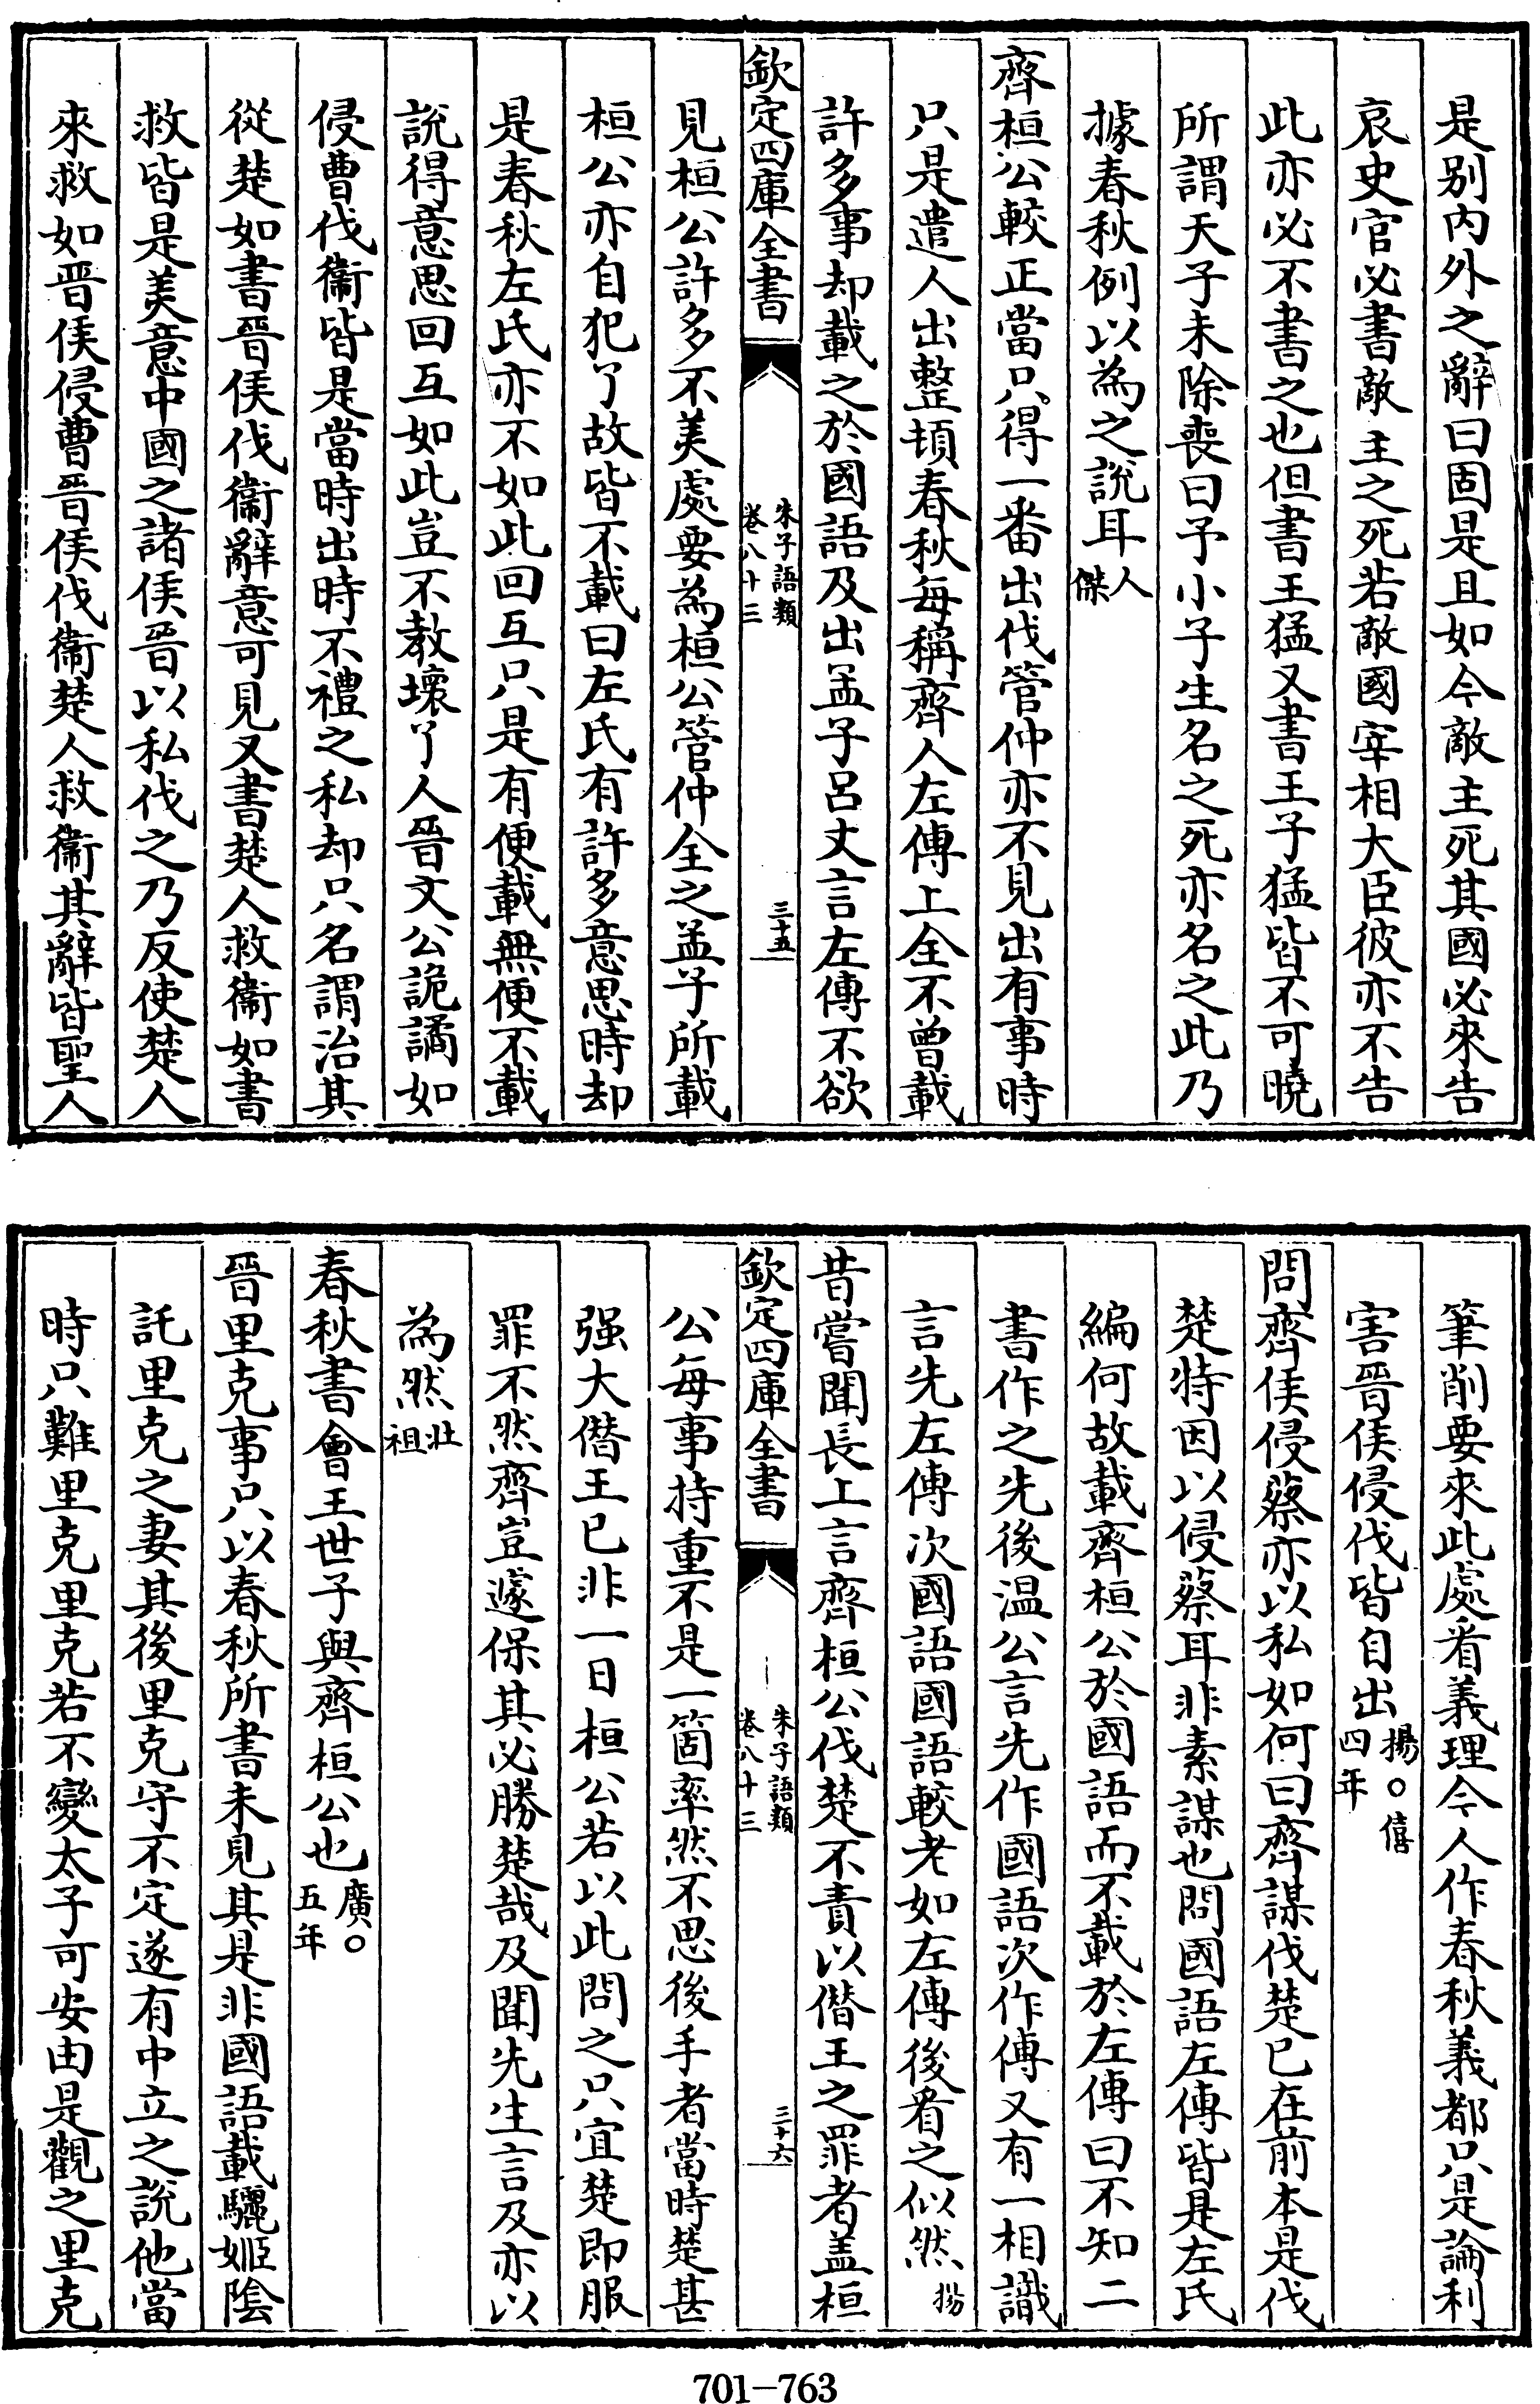 是别内外之辭曰固是且如今敵主死其國必來告
哀史官必書敵主之死若敵國宰相大臣彼亦不告
此亦必不書之也但書王猛又書王子猛皆不可曉
所謂天子未除喪曰予小子生名之死亦名之此乃
據春秋例以為之說耳人傑
齊桓公較正當只得一番出伐管仲亦不見出有事時
只是遣人出整頓春秋每稱齊人左傳上全不曾載
許多事却載之於國語及出孟子呂丈言左傳不欲
欽定四庫全書
朱子語類
卷八十三
三十五
見桓公許多不美處要為桓公管仲全之孟子所載
桓公亦自犯了故皆不載曰左氏有許多意思時却
是春秋左氏亦不如此回互只是有便載無便不載
說得意思回互如此豈不教壞了人晉文公詭譎如
侵曹伐衞皆是當時出時不禮之私却只名謂治其
從楚如書晉侯伐衞辭意可見又書楚人救衞如書
救皆是美意中國之諸侯晉以私伐之乃反使楚人
來救如晉侯侵曹晉侯伐衞楚人救衞其辭皆聖人
筆削要來此處看義理今人作春秋義都只是論利
害晉侯侵伐皆自出揚○僖四年
問齊侯侵蔡亦以私如何曰齊謀伐楚已在前本是伐
楚特因以侵蔡耳非素謀也問國語左傳皆是左氏
編何故載齊桓公於國語而不載於左傳曰不知二
書作之先後温公言先作國語次作傳又有一相識
言先左傳次國語國語較老如左傳後看之似然揚
昔嘗聞長上言齊桓公伐楚不責以僭王之罪者盖桓
欽定四庫全書
朱子語類
卷八十三
三十六
公每事持重不是一箇率然不思後手者當時楚甚
强大僭王已非一日桓公若以此問之只宜楚即服
罪不然齊豈遽保其必勝楚哉及聞先生言及亦以
為然壯祖
春秋書會王世子與齊桓公也廣○五年
晉里克事只以春秋所書未見其是非國語載驪姬陰
託里克之妻其後里克守不定遂有中立之說他當
時只難里克里克若不變太子可安由是觀之里克
701—763